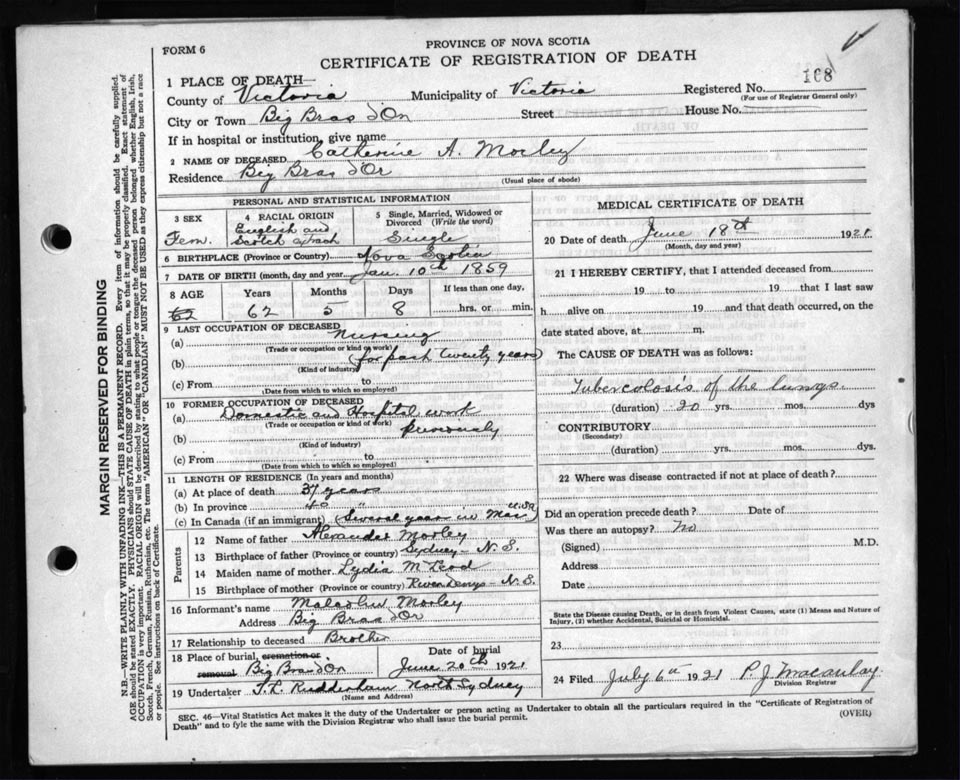 FORM 6
PROVINCE OF NOVA SCOTIA
CERTIFICATE OF REGISTRATION OF DEATH
1 PLACE OF DEATH—
County of Victoria Municipality of Victoria Registered No. 168
(For use of Registrar General only)
City or Town Big Bras d'Or Street House No.
If in hospital or institution, give name
2 NAME OF DECEASED Catherine A. Morley
Residence Big Bras d'Or
(Usual place of abode)
PERSONAL AND STATISTICAL INFORMATION
3 SEX 4 RACIAL ORIGIN 5 Single, Married, Widowed or Divorced (Write the word)
Fem. English and Scotch Single
6 BIRTHPLACE (Province or Country) Nova Scotia
7 DATE OF BIRTH (month, day and year) Jan. 10th 1859
8 AGE Years Months Days If less than one day,
62 62 5 8 hrs. or min.
9 LAST OCCUPATION OF DECEASED
(a) Nursing
(Trade or occupation or kind of work)
(b) (for past twenty years)
(Kind of industry)
(c) From to
(Date from which to which so employed)
10 FORMER OCCUPATION OF DECEASED
(a) Domestic and Hospital work
(Trade or occupation or kind of work)
(b) previously
(Kind of industry)
(c) From to
(Date from which to which so employed)
11 LENGTH OF RESIDENCE (In years and months)
(a) At place of death 37 years
(b) In province 40 "
(c) In Canada (if an immigrant) (Several year in
Parents
12 Name of father Alexander Morley
13 Birthplace of father (Province or country) Sydney - N. S.
14 Maiden name of mother Lydia McLeod
15 Birthplace of mother (Province or country) River Denys - N. S.
16 Informant's name Morley
Address Big Bras d'Or
17 Relationship to deceased Brother
18 Place of burial, cremation or removal Big Bras d'Or Date of burial June 20th 1921
19 Undertaker Rudderham North Sydney
(Name and Address)
MEDICAL CERTIFICATE OF DEATH
20 Date of death June 18th 1921
(Month, day and year)
21 I HEREBY CERTIFY, that I attended deceased from
19 to 19 that I last saw
h alive on 19 and that death occurred, on
date stated above, at m.
The CAUSE OF DEATH was as follows:
Tubercolosis of the lungs.
(duration) 20 yrs. mos. dys
CONTRIBUTORY
(Secondary)
(duration) yrs. mos. dys.
22 Where was disease contracted if not at place of death?
Did an operation precede death? Date of
Was there an autopsy? No
(Signed) M.D.
Address
Date
State the Disease causing Death, or in death from Violent Causes, state (1) Means and Nature of
Injury, (2) whether Accidental, Suicidal or Homicidal.
23
24 Filed July 6th 1921 P. J. Macaulay
Division Registrar
SEC. 46—Vital Statistics Act makes it the duty of the Undertaker or person acting as Undertaker to obtain all the particulars required in the "Certificate of Registration of
Death" and to fyle the same with the Division Registrar who shall issue the burial permit.
(OVER)
MARGIN RESERVED FOR BINDING
N.B.—WRITE PLAINLY WITH UNFADING INK—THIS IS A PERMANENT RECORD. Every item of information should be carefully supplied.
AGE should be stated EXACTLY. PHYSICIANS should STATE CAUSE OF DEATH in plain terms, so that it may be properly classified. Exact statement of
OCCUPATION is very important. RACIAL ORIGIN will be described by stating to what people or tongue the deceased person belonged whether English, Irish,
Scotch, French, German, Russian, Ruthenian, etc. The terms "AMERICAN" or "CANADIAN" MUST NOT BE USED as they express citizenship but not a race
or people. See instructions on back of Certificate.